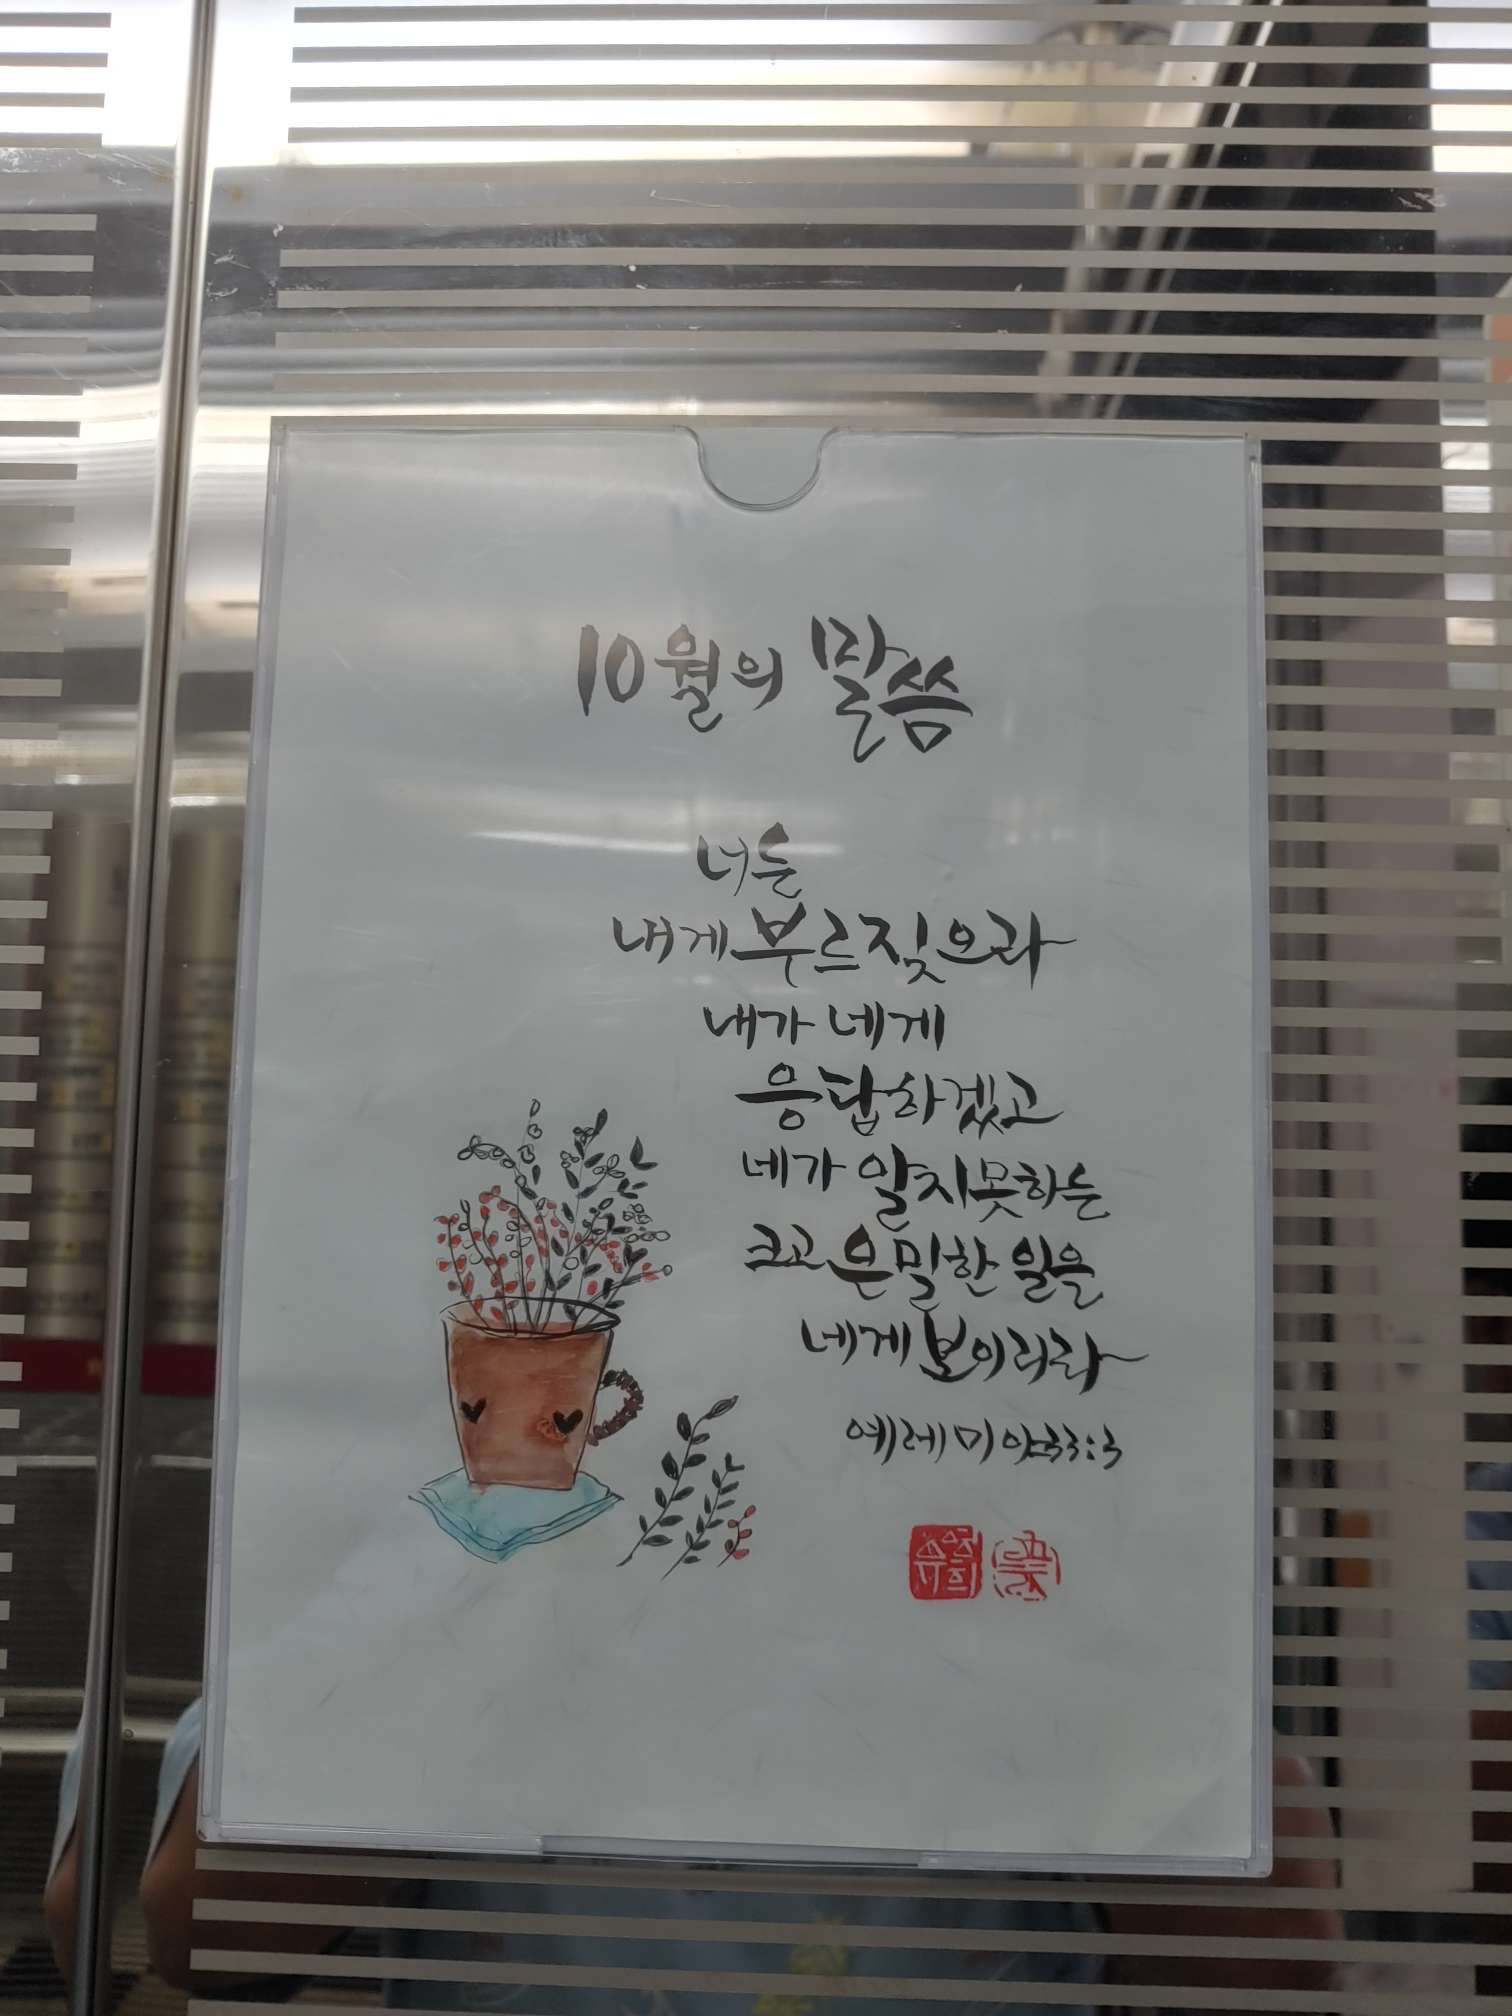 10월의 말씀
너는
내게 부르짖으라
내가 네게
응답하겠고
네가 알지못하는
크고 은밀한 일을
네게 보이리라
예레미야33:3